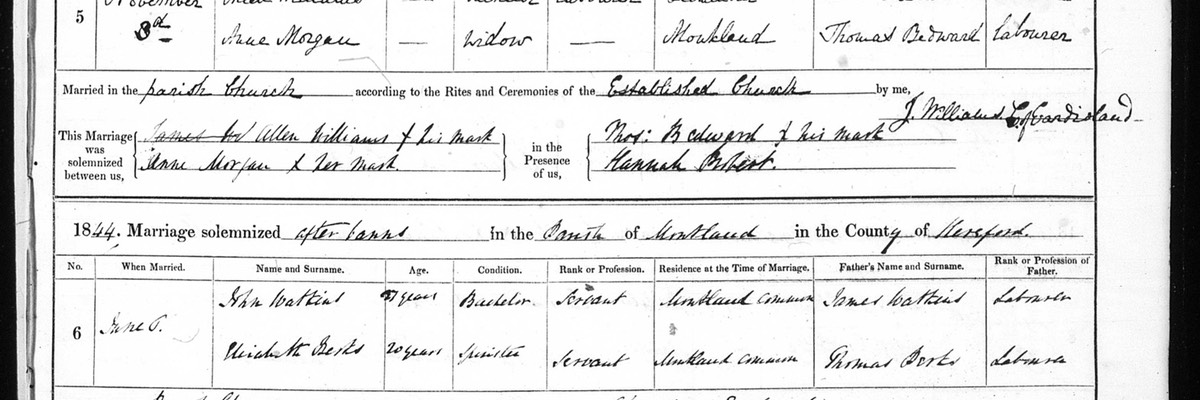 5
3d Anne Morgan — Widow — Monkland Thomas Bedward Labourer
Married in the parish Church according to the Rites and Ceremonies of the Established Church by me,
J. Williams C. of Eardisland
This Marriage was solemnized between us, James W Allen Williams X his mark in the Presence of us, Thos: Bedward X his mark
Anne Morgan X her mark. Hannah
1844. Marriage solemnized after banns in the Parish of Monkland in the County of Hereford.
No. When Married. Name and Surname. Age. Condition. Rank or Profession. Residence at the Time of Marriage. Father's Name and Surname. Rank or Profession of Father.
6 June John Watkins years Bachelor. Servant Monkland Common James Watkins Labourer
Elizabeth Berks 20 years Spinster Servant Monkland Common Thomas Berks Labourer